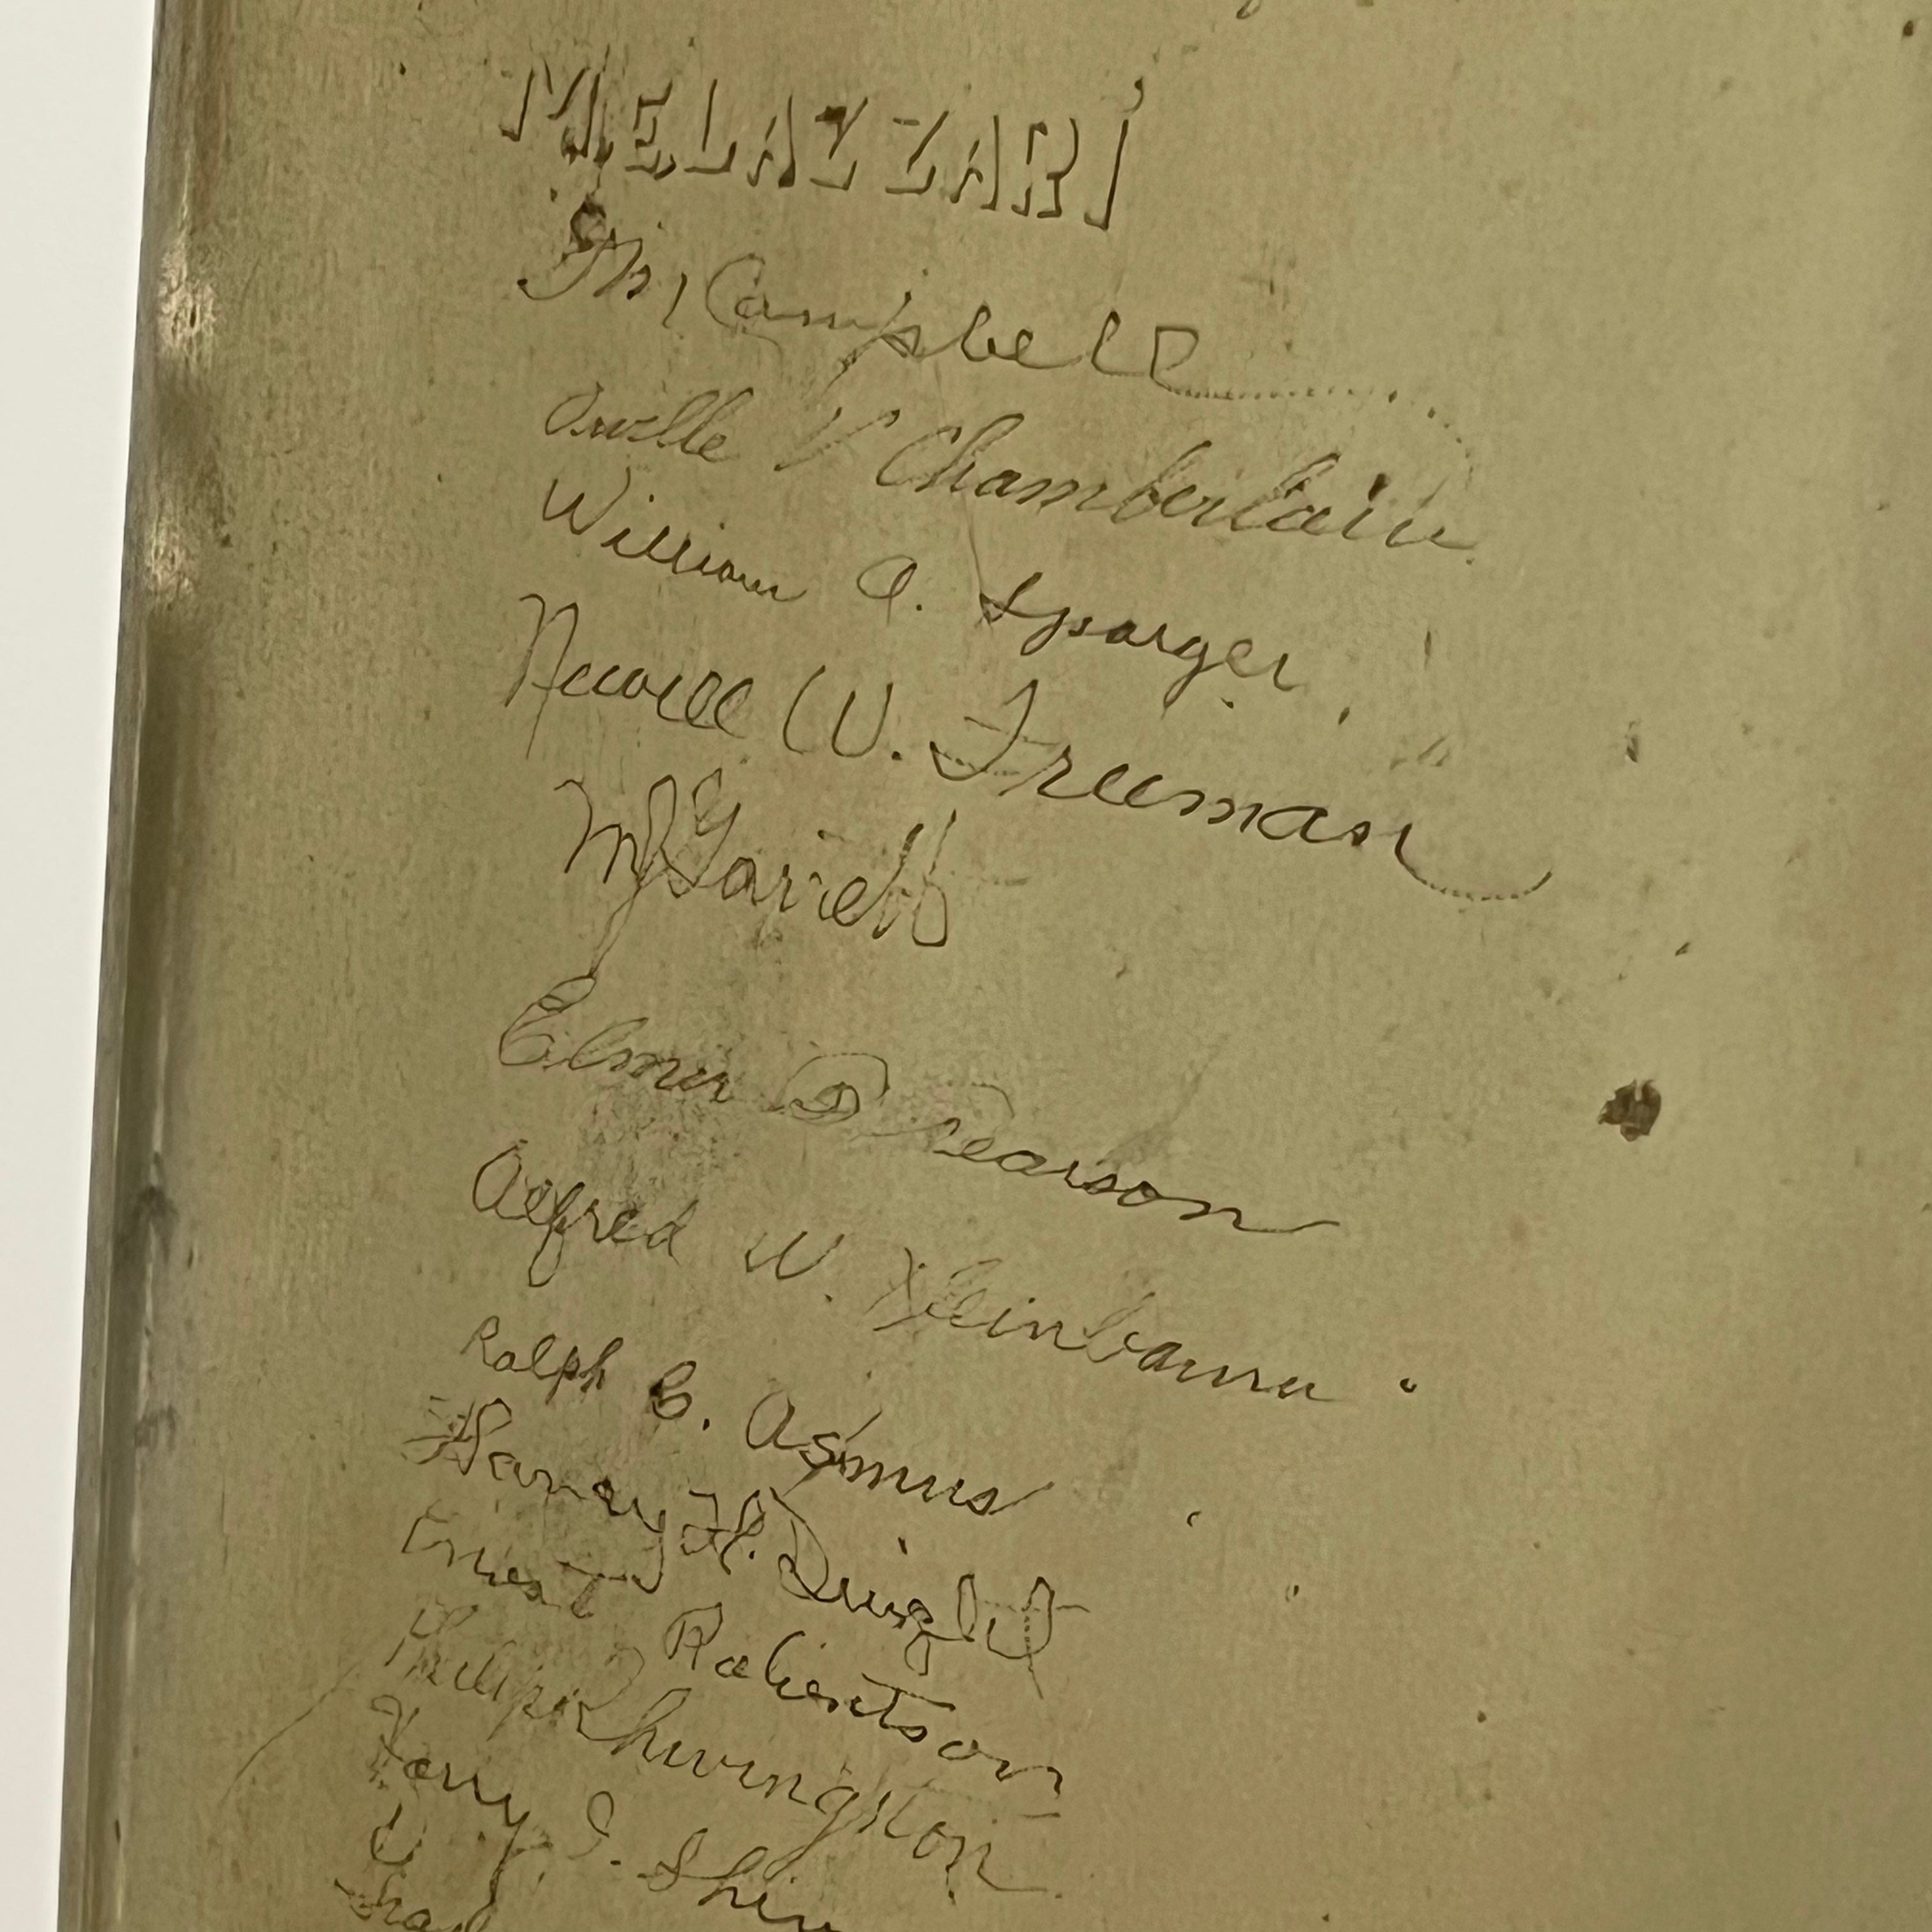 MELAZZARI
Campbell
Orville V Chamberlain
William A. Sparger
Newell W. Freeman
M J Garrett
Elmer D Pearson
Alfred W. Kleinbaum
Ralph B. Asmus
Harvey H. Dwight
Ernest Robertson
Philip R Livingston
Harry S. Shin